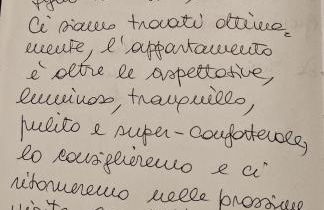 Ci siamo trovati ottima=
mente, l'appartamento
è oltre le aspettative,
luminoso, tranquillo,
pulito e super-confortevole,
lo consiglieremo e ci
ritorneremo nelle prossime